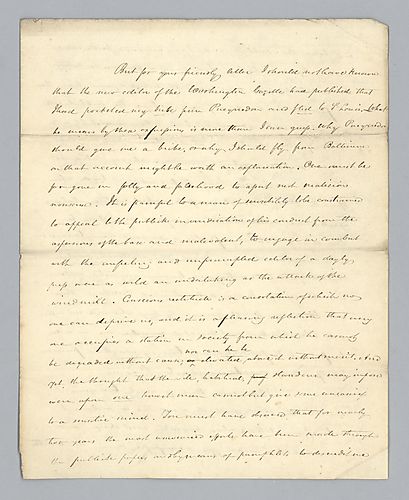 But for your friendly letter I should not have known
that the new editor of the Washington Gazette had published that
I had pocketed my bribe from Pueyrredon and fled to St Louis. What
he means by these expressions is more than I can guess. Why Pueyrredon
should give me a bribe, or why I should fly from Baltimore
on that account might be worth an explanation. One must be
far gone in folly and falsehood to assert such malicious
nonsense. It is painful to a man of sensibility to be constrained
to appeal to the publick in vindication of his conduct from the
aspersions of the base and malevolent, to engage in combat
with the unfeeling and unprincipled editor of a dayly
press were as wild an undertaking as the attack of the
windmill. Conscious rectitude is a consolation of which no
one can deprive us, and it is a pleasing reflection that every
one occupies a station in society from which he cannot
be degraded without cause, nor can he be elevated above it without merit. And
yet, the thought that the vile, habitual, slanderer may impose
were upon one honest man cannot but give some uneasiness
to a sensitive mind. You must have observed that for nearly
two years the most unwearied efforts have been made through
the publick papers and by means of pamphlets to